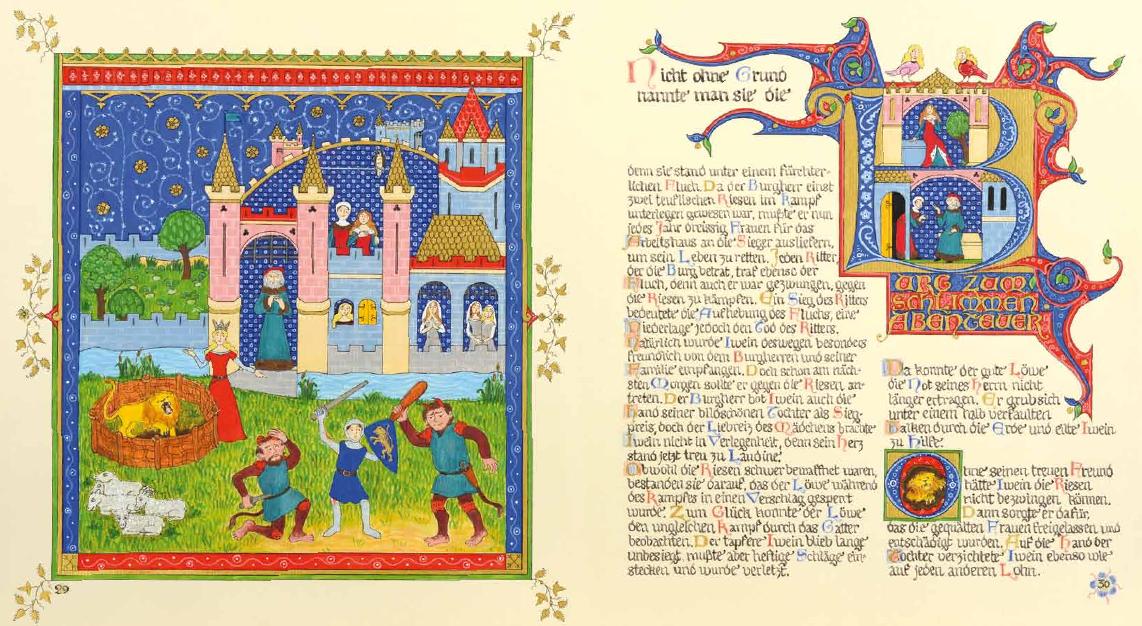 29
Nicht ohne Grund
nannte man sie die
BURG ZUM
SCHLIMMEN
ABENTEUER
denn sie stand unter einem fürchter-
lichen Fluch. Da der Burgherr einst
zwei teuflischen Riesen im Kampf
unterlegen gewesen war, mußte er nun
jedes Jahr dreissig Frauen für das
Arbeitshaus an die Sieger ausliefern,
um sein Leben zu retten. Jeden Ritter,
der die Burg betrat, traf ebenso der
Fluch, denn auch er war gezwungen, gegen
die Riesen zu kämpfen. Ein Sieg des Ritters
bedeutete die Aufhebung des Fluchs, eine
Niederlage jedoch den Tod des Ritters.
Natürlich wurde Iwein deswegen besonders
freundlich von dem Burgherren und seiner
Familie empfangen. Doch schon am näch-
sten Morgen sollte er gegen die Riesen, an-
treten. Der Burgherr bot Iwein auch die
Hand seiner bildschönen Tochter als Sieg-
preis, doch der Liebreiz des Mädchens brachte
Iwein nicht in Verlegenheit, denn sein Herz
stand jetzt treu zu Laudine.
Obwohl die Riesen schwer bewaffnet waren,
bestanden sie darauf, das der Löwe während
des Kampfes in einen Verschlag gesperrt
wurde. Zum Glück konnte der Löwe
den ungleichen Kampf durch das Gatter
beobachten. Der tapfere Iwein blieb lange
unbesiegt, mußte aber heftige Schläge ein-
stecken und wurde verletzt.
Da konnte der gute Löwe
die Not seines Herrn nicht
länger ertragen. Er grub sich
unter einem halb verfaulten
Balken durch die Erde und eilte Iwein
zu Hilfe.
Ohne seinen treuen Freund
hätte Iwein die Riesen
nicht bezwingen können.
Dann sorgte er dafür,
das die gequälten Frauen freigelassen und
entschädigt wurden. Auf die Hand der
Tochter verzichtete Iwein ebenso wie
auf jeden anderen Lohn.
30